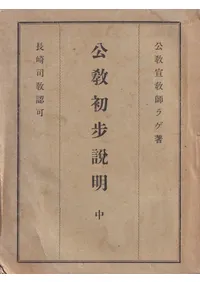 公教宣教師ラゲ著
公教初步說明 中
長崎司教認可